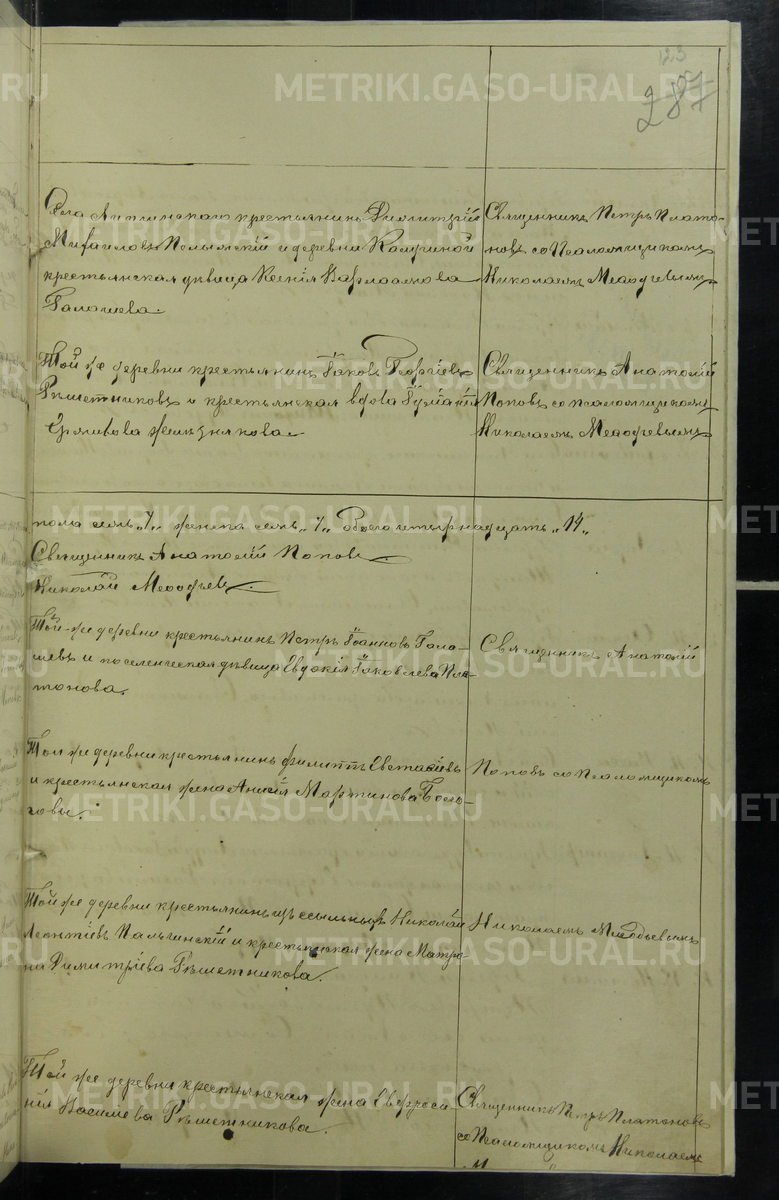 123
287
Села Липчинскаго крестьянинъ Димитрій
Михаиловъ Пелымскій и деревни
крестьянская дѣвица Ксенія Варлаамова
Галашева.
Священникъ Петръ Плато-
новъ со Псаломщикомъ
Николаемъ Меѳодіевымъ
Той же деревни крестьянинъ Іаковъ Георгіевъ
Рѣшетниковъ и крестьянская вдова
Желѣзнякова.
Священникъ Анатолій
Поповъ со псаломщикомъ
Николаемъ Меѳодіевымъ
пола семь „7„ женска семь „7„ Обоего четырнадцать „14„
Священникъ Анатолій Поповъ
Николай Меѳодіевъ
Той-же деревни крестьянинъ Петръ Іоанновъ Гала-
шевъ и поселенческая дѣвица Евдокія Іаковлева Пла-
тонова.
Священникъ Анатолій
Той же деревни крестьянинъ Филиппъ Евстаѳіевъ
и крестьянская жена Анисія Мартинова
Поповъ со Псаломщикомъ
Той же деревни крестьянинъ изъ ссыльныхъ Николай
Леонтіевъ Пальчинскій и крестьянская жена Матро-
на Димитріева Рѣшетникова.
Николаемъ Меѳодьевымъ
Той же деревни крестьянская жена Евфроси-
нія Васильева Рѣшетникова.
Священникъ Петръ Платоновъ
со Псаломщикомъ Николаемъ
METRIKI.GASO-URAL.RU